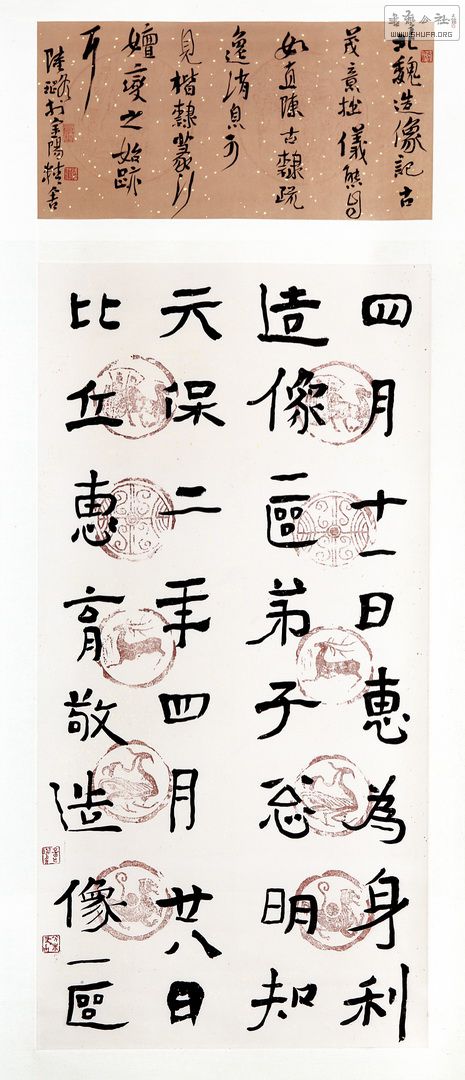 书法公社
WWW.SHUFA.ORG
北魏造像記古
茂意拙儀態自
如直陳古隸疏
逸消息可
見楷隸篆行
嬗變之始跡
耳
陸璐 陽精舍
四月十一日惠為身利
造像一區弟子忩明知
元保二年四月廿八日
比丘惠育敬造像一區